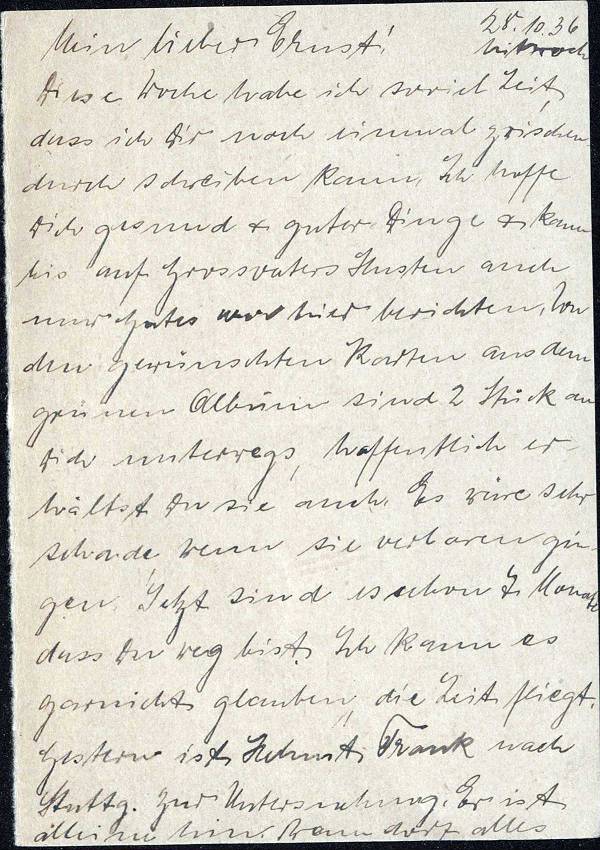 28.10.36
Mittwoch
Mein lieber Ernst!
Diese Woche habe ich soviel Zeit,
dass ich Dir noch einmal zwischen
durch schreiben kann. Ich hoffe
Dich gesund & guter Dinge & kann
bis auf Grossvaters Husten auch
nur Gutes von hier berichten. Von
den gewünschten Karten aus dem
grünen Album sind 2 Stück an
Dich unterwegs, hoffentlich er-
hältst Du sie auch. Es wäre sehr
schade wenn sie verloren gin-
gen. Jetzt sind es schon 7 Monate
dass Du weg bist. Ich kann es
garnicht glauben, die Zeit fliegt.
Gestern ist Helmut Frank nach
Stuttg. zur Untersuchung. Er ist
alleine hin, wenn dort alles